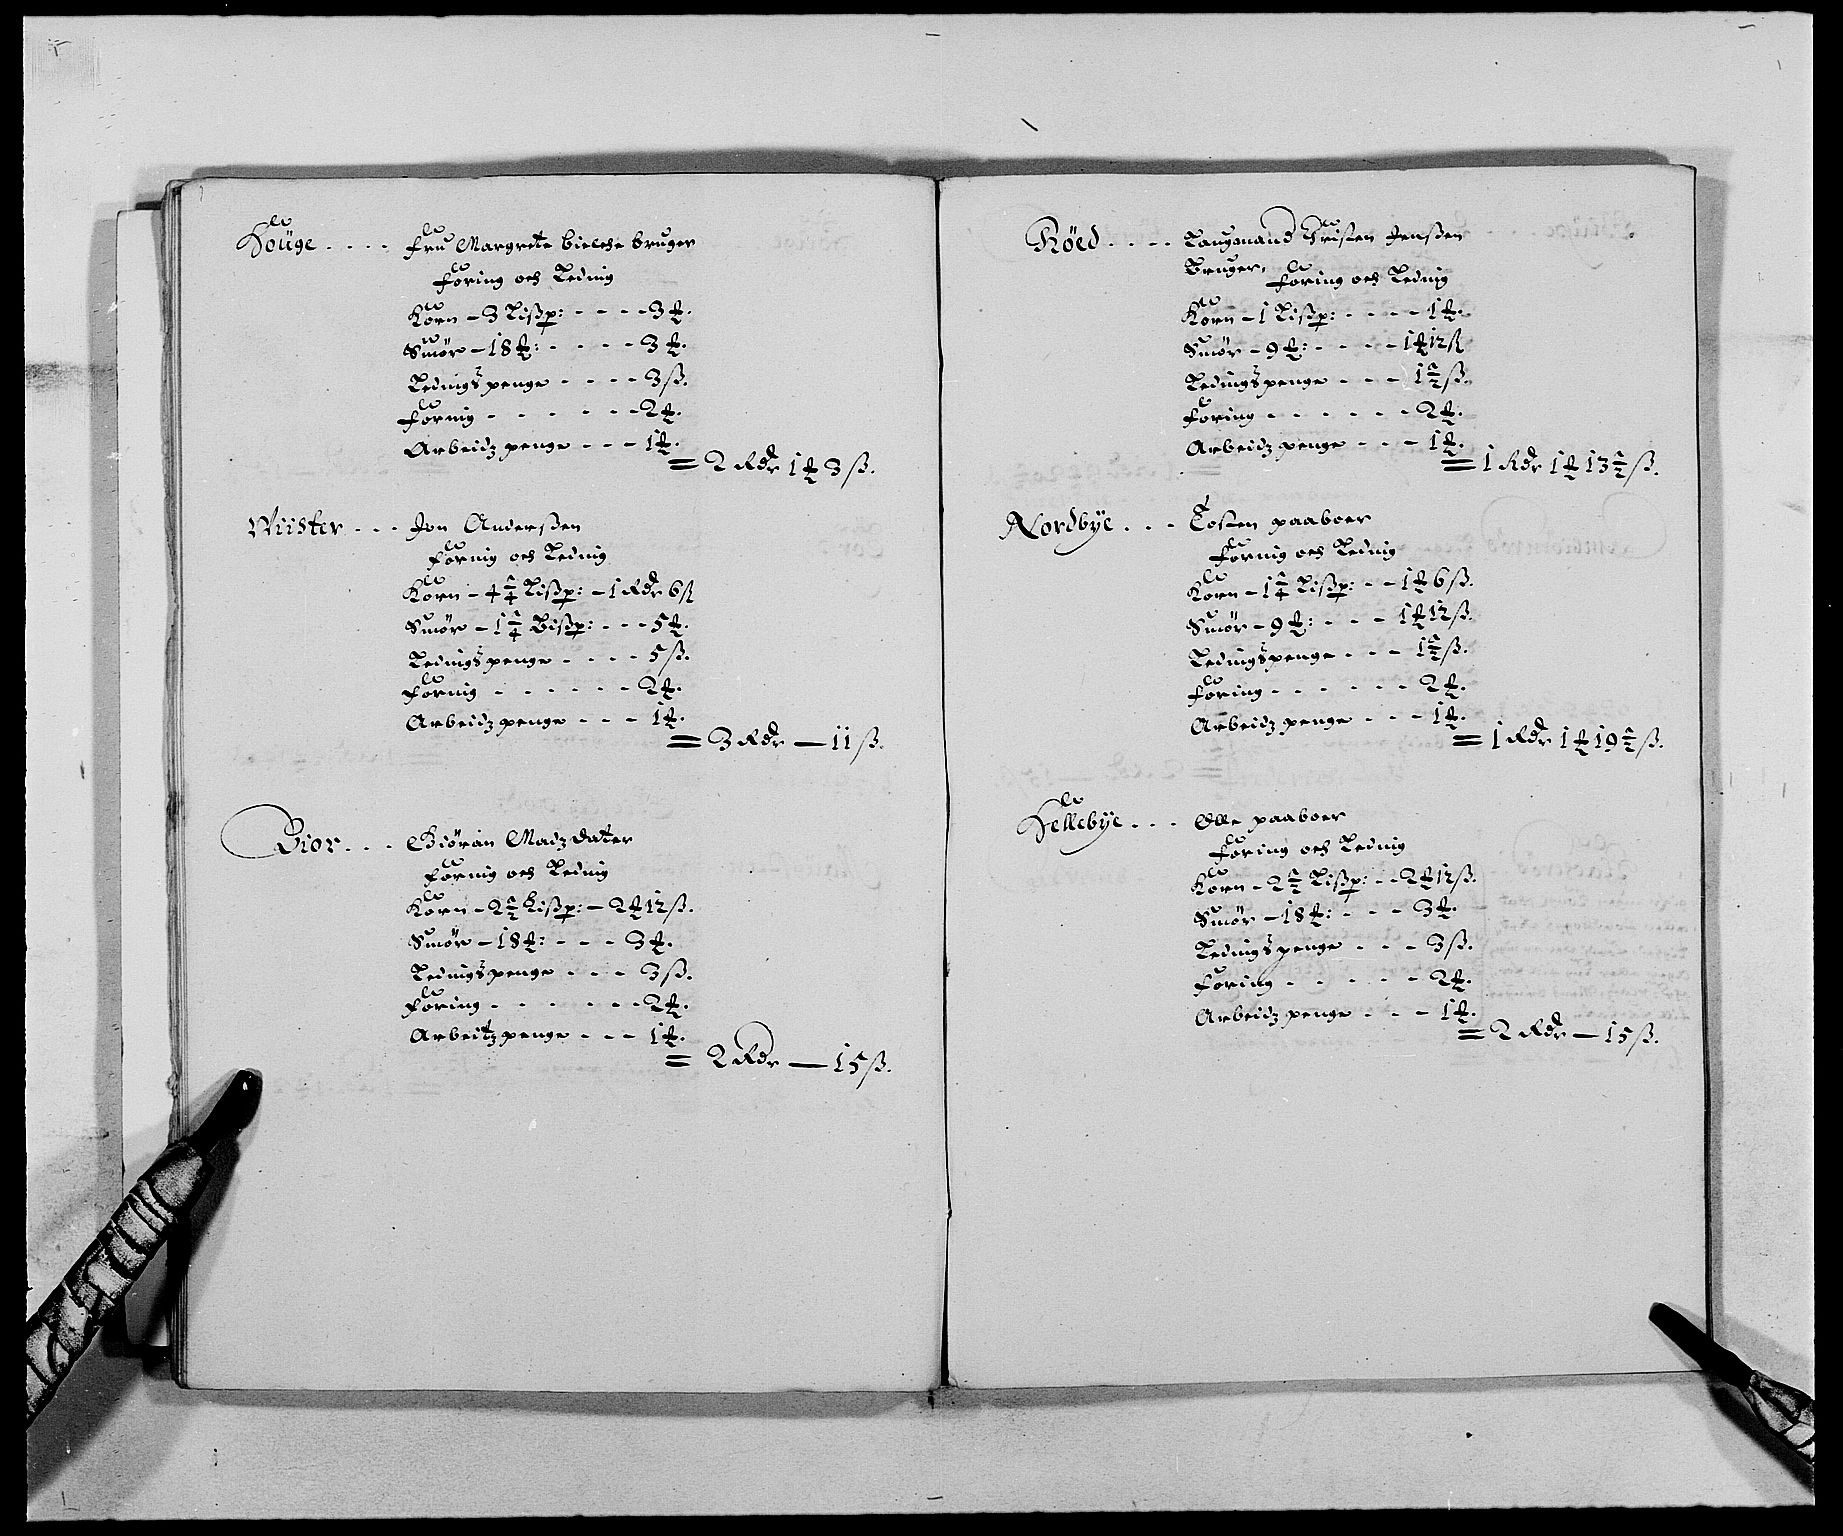 Houge . . . . Fru Margrete Bielche bruger
Foring och Leding
Korn – 3 Lißp: . . . . 3 ℔.
Smör – 18 ℔: . . . . 3 ℔.
Ledingspenge . . . . 3 ß.
Foring . . . . . . 2 ℔.
Arbeidz penge . . . 1 ℔.
= 2 Rdr 1 ℔ 3 ß.
Wiister . . . Jon Anderßen
Foring och Leding
Korn – 4 1/4 Lißp: – 1 Rdr 6 ß
Smör – 1 1/4 Bißp: . . . 5 ℔.
Ledingspenge . . . . 5 ß.
Foring . . . . . . 2 ℔.
Arbeidz penge . . . 1 ℔.
= 3 Rdr — 11 ß.
Bior . . . Giöran Madz dater
Foring och Leding
Korn – 2 1/2 Lißp: – 2 ℔ 12 ß.
Smör – 18 ℔: . . . 3 ℔.
Ledingspenge . . . 3 ß.
Foring . . . . . . 2 ℔.
Arbeitz penge . . . 1 ℔.
= 2 Rdr — 15 ß.
Röed . . . . Laugmand Christen Jenßen
Bruger, Foring och Leding
Korn – 1 Lißp: . . . . 1 ℔.
Smör – 9 ℔: . . . . 1 ℔ 12 ß
Ledingspenge . . . 1 1/2 ß.
Foring . . . . . . 2 ℔.
Arbeidz penge . . . 1 ℔.
= 1 Rdr 1 ℔ 13 1/2 ß.
Nordbye . . . Tosten paaboer
Foring och Leding
Korn – 1 1/4 Lißp: . . 1 ℔ 6 ß.
Smör – 9 ℔: . . . . 1 ℔ 12 ß.
Ledingspenge . . . 1 1/2 ß.
Foring . . . . . . 2 ℔.
Arbeidz penge . . . 1 ℔.
= 1 Rdr 1 ℔ 19 1/2 ß.
Hellebye . . . Olle paaboer
Foring och Leding
Korn – 2 1/2 Lißp: . . 2 ℔ 12 ß.
Smör – 18 ℔: . . . 3 ℔.
Ledingspenge . . . 3 ß.
Foring . . . . . . 2 ℔.
Arbeidz penge . . . 1 ℔.
= 2 Rdr — 15 ß.